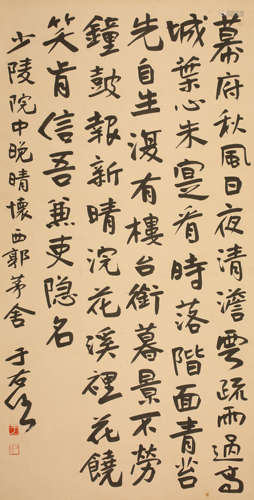 幕府秋風日夜清澹雲疏雨過高
城葉心朱宲看時落階面青苔
先自生復有樓台銜暮景不勞
鐘皷報新晴浣花溪裡花饒
笑肯信吾兼吏隱名
少陵院中晚晴懷西郭茅舍 于右任